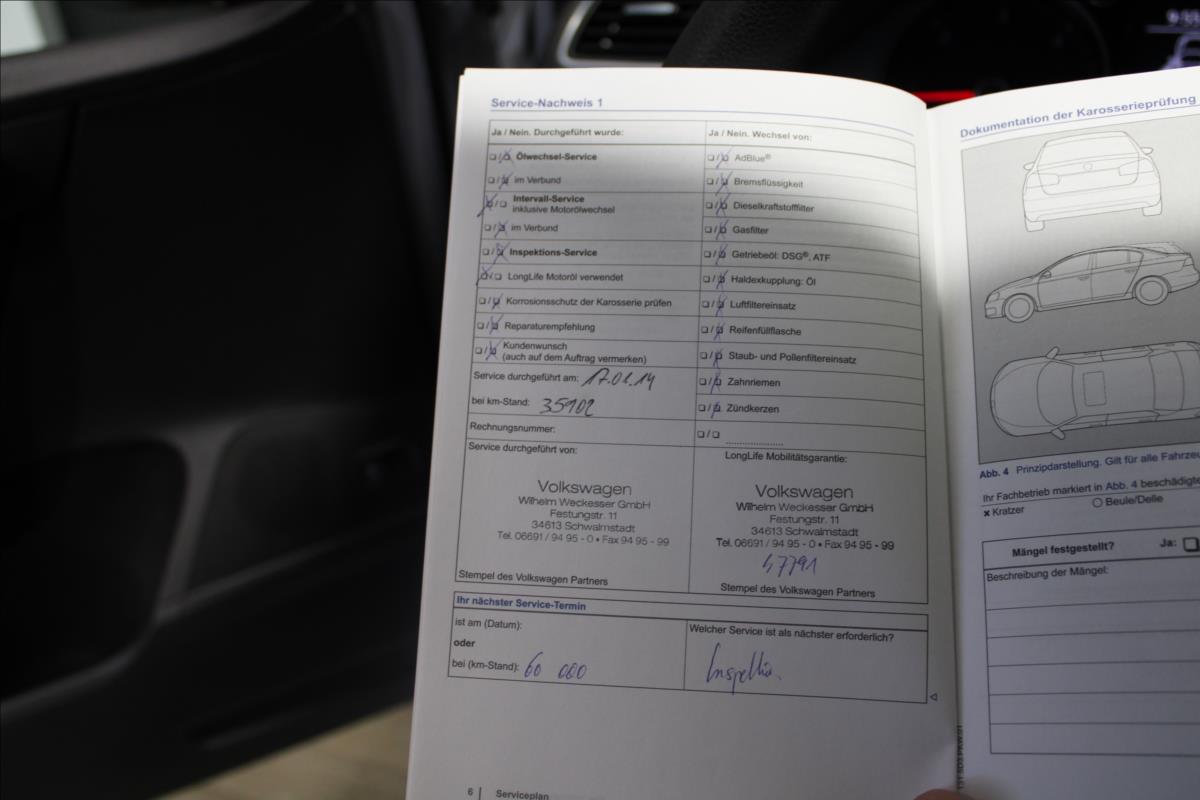 Service-Nachweis 1
Ja / Nein. Durchgeführt wurde:
Ölwechsel-Service
im Verbund
Intervall-Service
inklusive Motorölwechsel
im Verbund
Inspektions-Service
LongLife Motoröl verwendet
Korrosionsschutz der Karosserie prüfen
Reparaturempfehlung
Kundenwunsch
(auch auf dem Auftrag vermerken)
Service durchgeführt am: 17.01.14
bei km-Stand: 35902
Rechnungsnummer:
Service durchgeführt von:
Volkswagen
Wilhelm Weckesser GmbH
Festungstr. 11
34613 Schwalmstadt
Tel. 06691 / 94 95 - 0 • Fax 94 95 - 99
Stempel des Volkswagen Partners
Ja / Nein. Wechsel von:
AdBlue®
Bremsflüssigkeit
Dieselkraftstofffilter
Gasfilter
Getriebeöl: DSG®, ATF
Haldexkupplung: Öl
Luftfiltereinsatz
Reifenfüllflasche
Staub- und Pollenfiltereinsatz
Zahnriemen
Zündkerzen
LongLife Mobilitätsgarantie:
Volkswagen
Wilhelm Weckesser GmbH
Festungstr. 11
34613 Schwalmstadt
Tel. 06691 / 94 95 - 0 • Fax 94 95 - 99
47791
Stempel des Volkswagen Partners
Ihr nächster Service-Termin
ist am (Datum):
oder
bei (km-Stand): 60 000
Welcher Service ist als nächster erforderlich?
6 | Serviceplan
Dokumentation der Karosserieprüfung
Abb. 4 Prinzipdarstellung. Gilt für alle
Ihr Fachbetrieb markiert in Abb. 4
× Kratzer
Beule/Delle
Mängel festgestellt? Ja:
Beschreibung der Mängel: